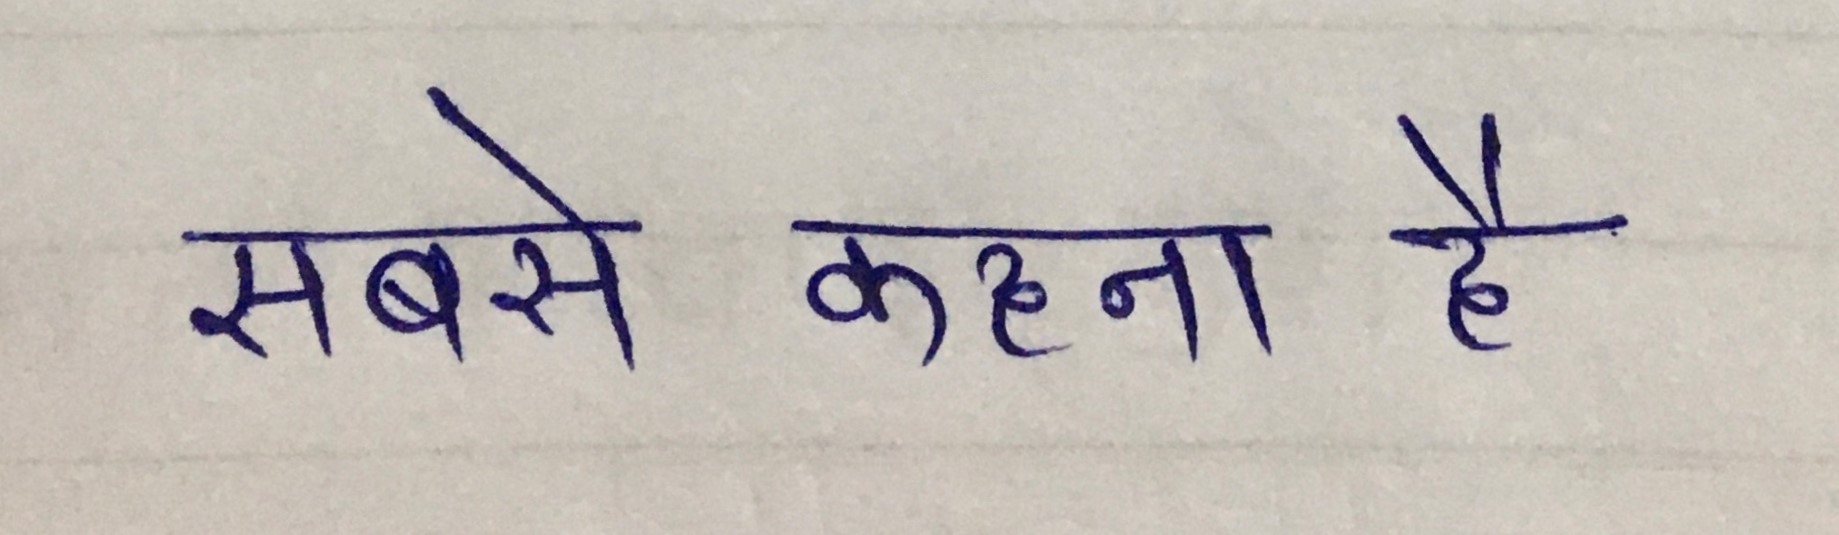 सबसे कहना है